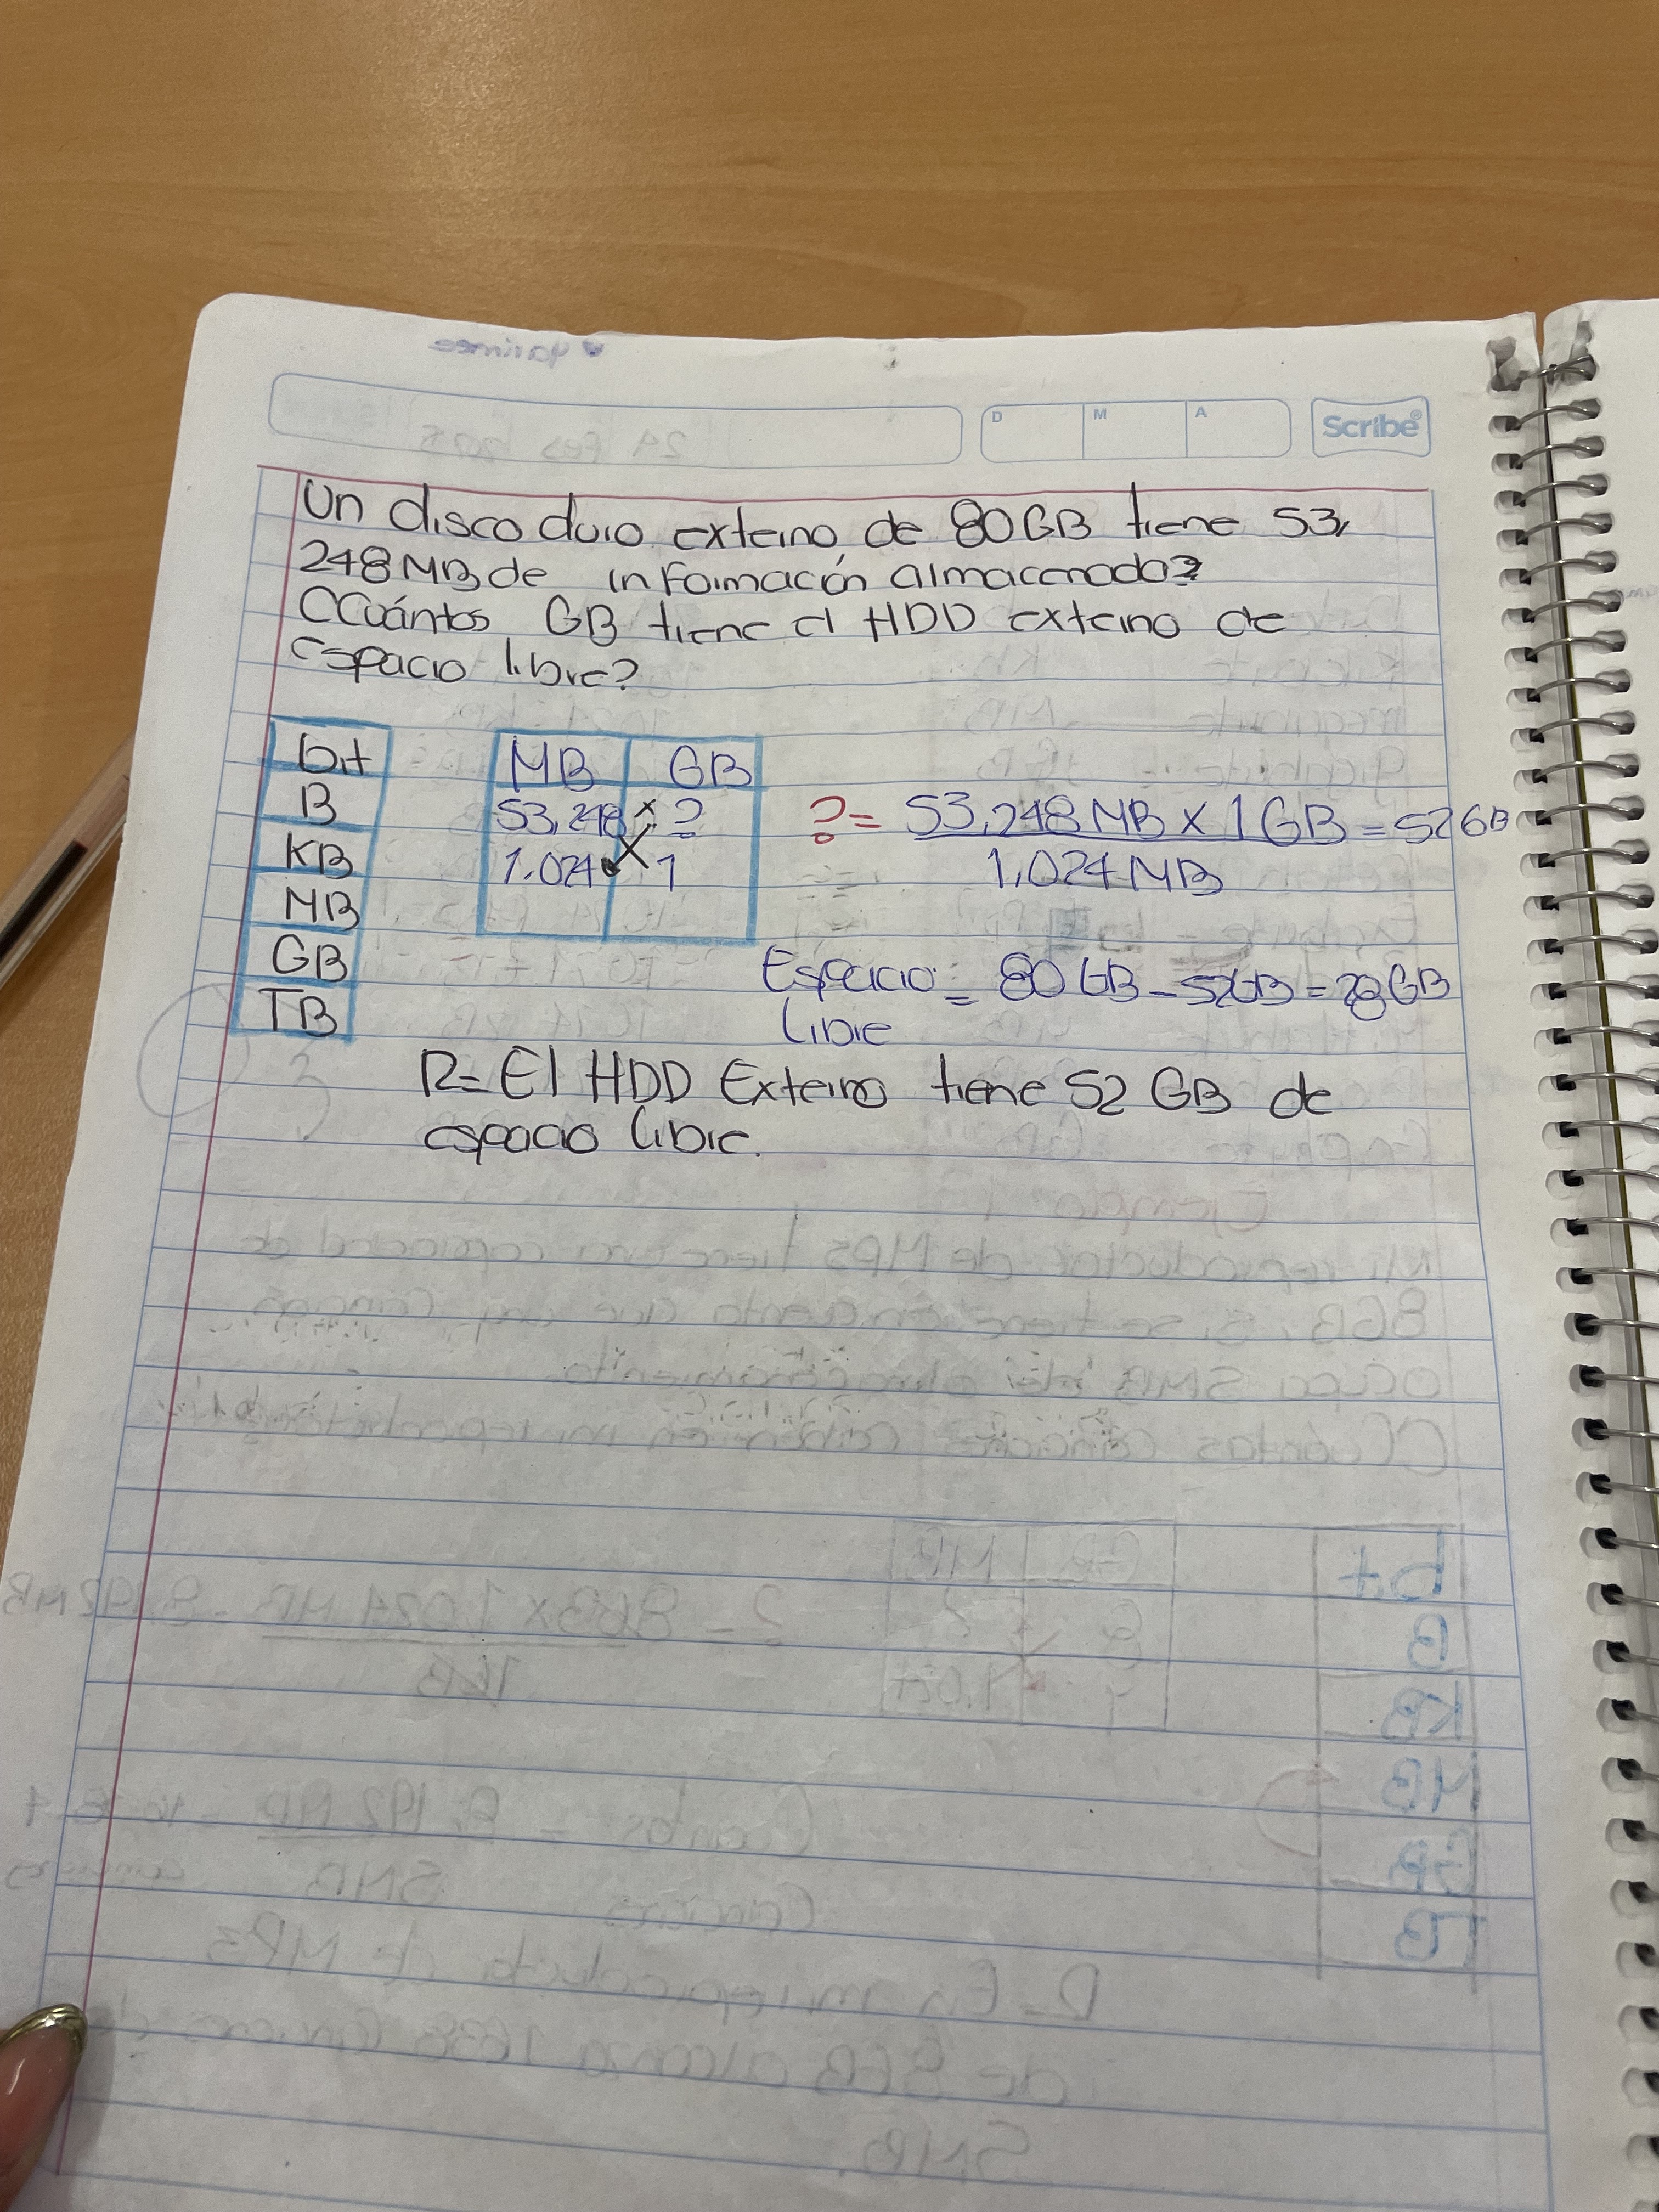 D M A Scribe®
Un disco duro externo, de 80GB tiene 53,
248MB de información almacenada?
CCuántos GB tiene el HDD externo de
espacio libre?
bit
B
KB
MB
GB
TB
MB GB
53,248 ?
1.024 1
?= 53,248 MB x 1GB = 52GB
1,024 MB
Espacio = 80GB - 52GB = 28GB
libre
R= El HDD Externo tiene 52 GB de
espacio libre.